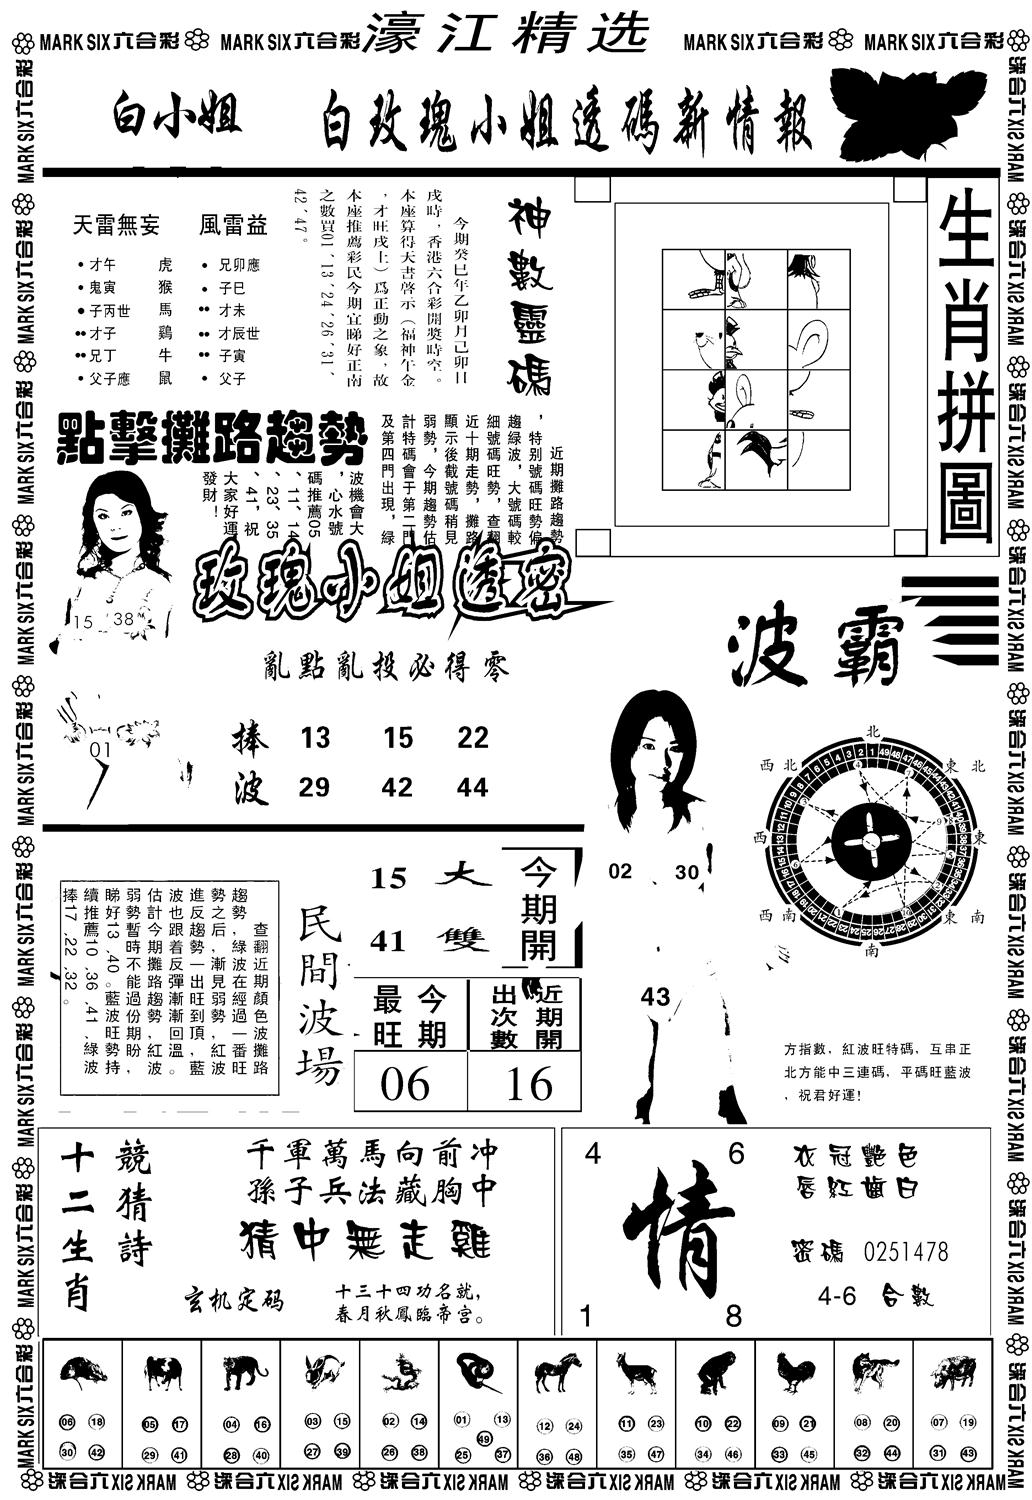 MARK SIX六合彩 MARK SIX六合彩 濠江精选 MARK SIX六合彩 MARK SIX六合彩
白小姐 白玫瑰小姐透碼新情報
天雷無妄 風雷益
•才午 虎 •兄卯應
•鬼寅 猴 •子巳
•子丙世 馬 ••才未
••才子 鷄 ••才辰世
••兄丁 牛 ••子寅
•父子應 鼠 •父子
神數靈碼
今期癸巳年乙卯月己卯日
戌時，香港六合彩開獎時空。
本座算得天書啓示（福神午金
，才旺戌土）爲正動之象，故
本座推薦彩民今期宜睇好正南
之數買01、13、24、26、31、
42、47。
生肖拼圖
點擊攤路趨勢
近期攤路趨勢
，特別號碼旺勢偏
趨緑波，大號碼較
細號碼旺勢，查翻
近十期走勢，攤路
顯示後截號碼稍見
弱勢，今期趨勢估
計特碼會于第二門
及第四門出現，緑
波機會大
，心水號
碼推薦05
、11、14
、23、35
、41，祝
大家好運
發財！
15 38
玫瑰小姐透密
亂點亂投必得零
01
捧 13 15 22
波 29 42 44
波霸
02 30
43
北
西北 東北
西 東
西南 東南
南
方指數，紅波旺特碼，互串正
北方能中三連碼，平碼旺藍波
，祝君好運！
查翻近期顔色波攤路
趨勢，緑波在經過一番旺
勢之后，漸見弱勢，紅波
進反趨勢一出旺到頂，藍
波也跟着反彈漸漸回溫。
估計今期攤路趨勢，紅波
弱勢暫時不能過份期盼，
睇好13、40。藍波旺勢持
續推薦10、36、41，緑波
捧17、22、32。
民間波場
15 大
41 雙
今期開
今期最旺
近期開出次數
06 16
十二生肖
競猜詩
千軍萬馬向前冲
孫子兵法藏胸中
猜中無走雞
玄机定码
十三十四功名就，
春月秋鳳臨帝宫。
4 6
情
1 8
衣冠艷色
唇紅齒白
密碼 0251478
4-6 合數
06 18 05 17 04 16 03 15 02 14 01 13 12 24 11 23 10 22 09 21 08 20 07 19
49
30 42 29 41 28 40 27 39 26 38 25 37 36 48 35 47 34 46 33 45 32 44 31 43
MARK SIX六合彩 MARK SIX六合彩 MARK SIX六合彩 MARK SIX六合彩 MARK SIX六合彩 MARK SIX六合彩